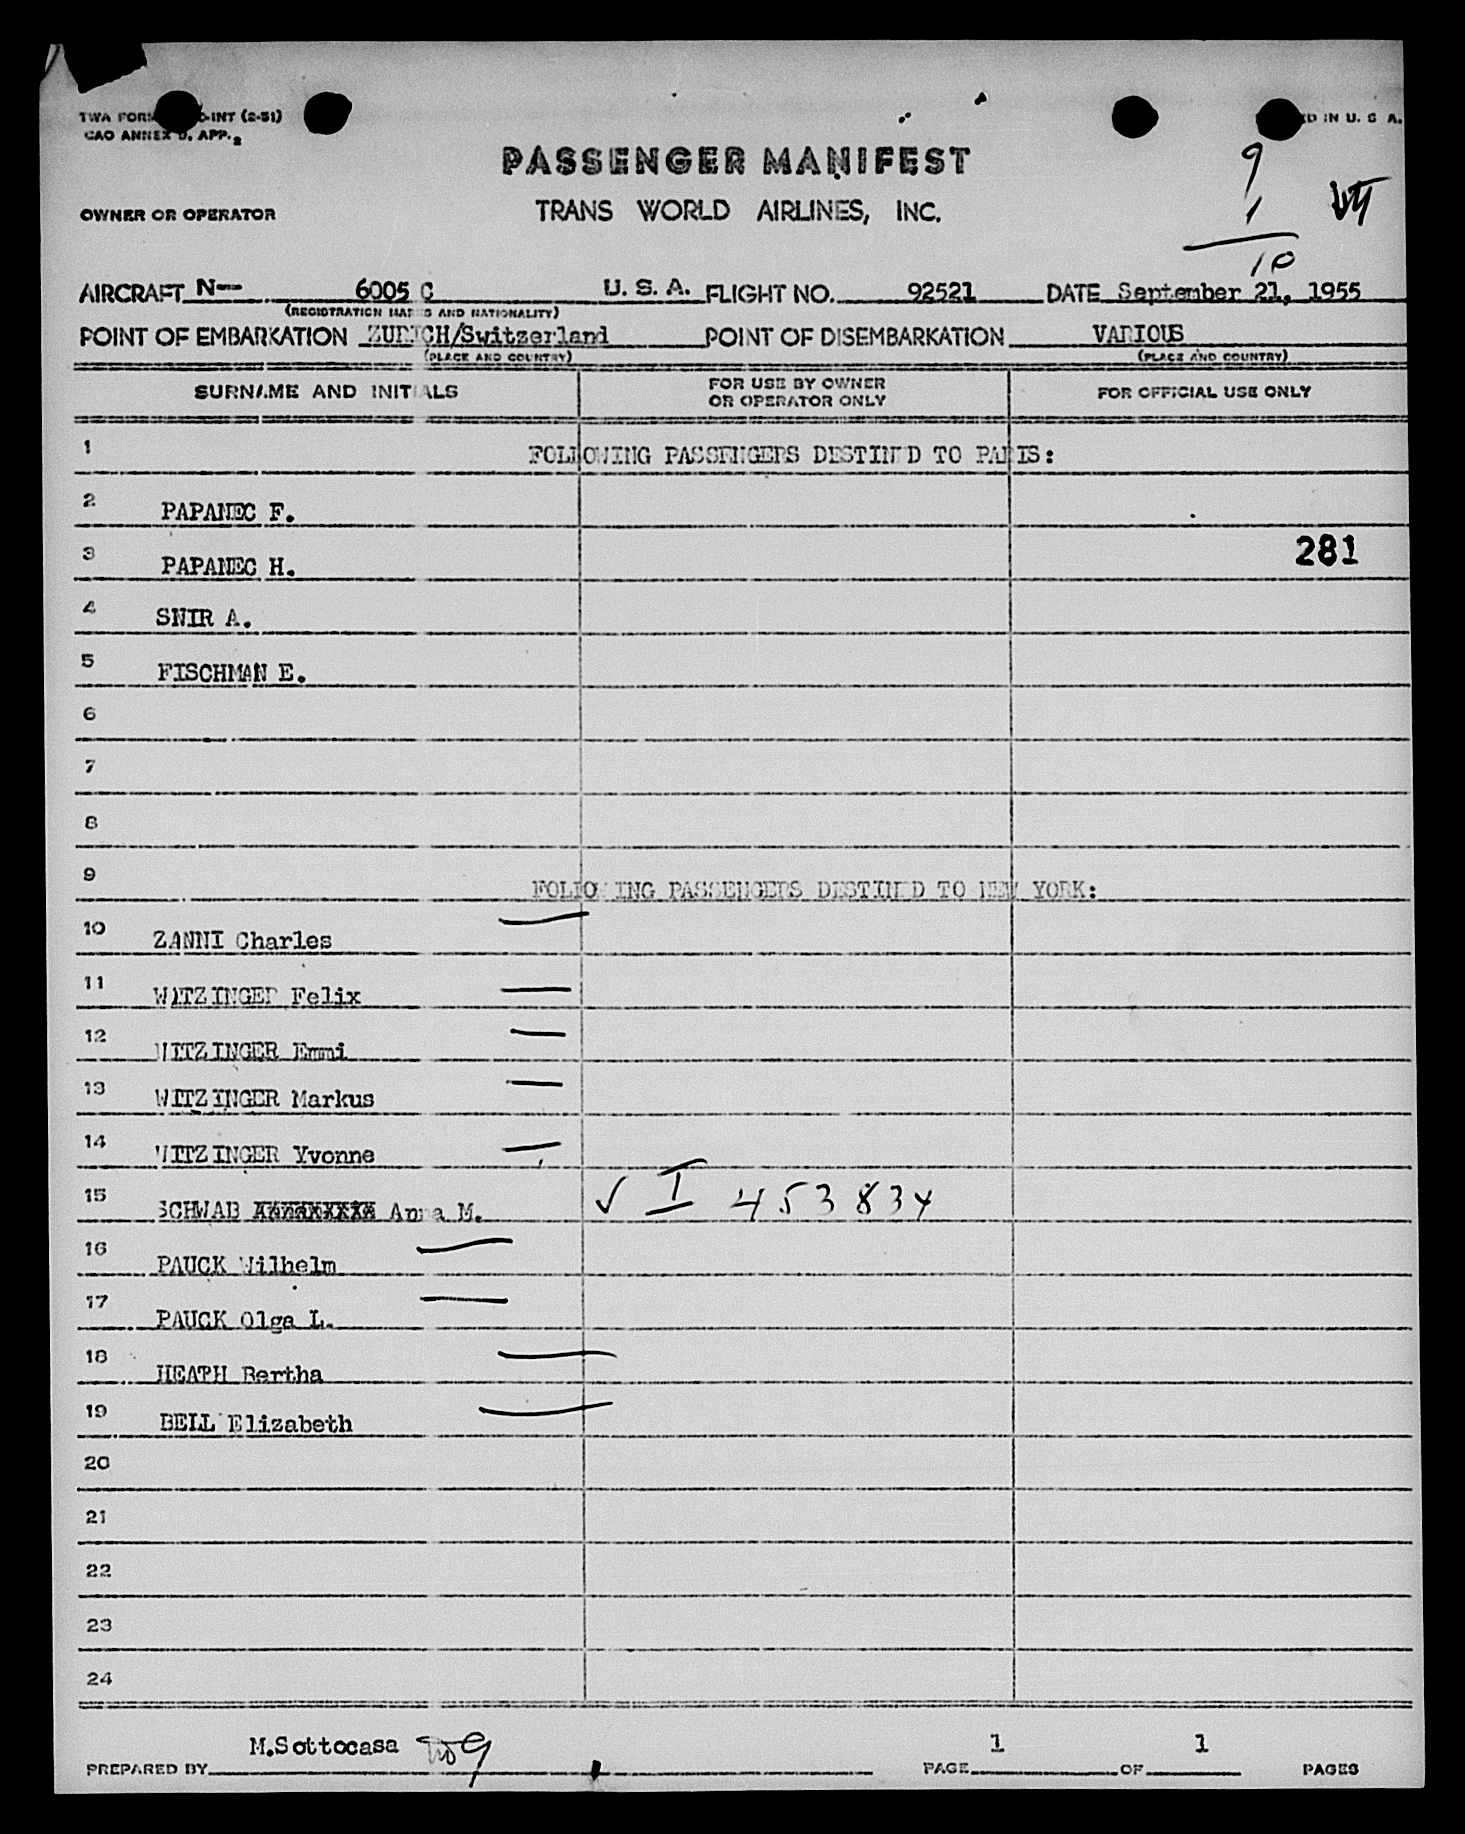 TWA FORM -INT (2-51)
CAO ANNEX 9, APP. 2
IN U. S A.
PASSENGER MANIFEST
9
1
10
OWNER OR OPERATOR TRANS WORLD AIRLINES, INC.
AIRCRAFT N-- 6005 C U. S. A. FLIGHT NO. 92521 DATE September 21, 1955
(REGISTRATION MARKS AND NATIONALITY)
POINT OF EMBARKATION ZURICH/Switzerland POINT OF DISEMBARKATION VARIOUS
(PLACE AND COUNTRY) (PLACE AND COUNTRY)
SURNAME AND INITIALS FOR USE BY OWNER OR OPERATOR ONLY FOR OFFICIAL USE ONLY
1 FOLLOWING PASSENGERS DESTINED TO PARIS:
2 PAPANEC F.
3 PAPANEC H. 281
4 SNIR A.
5 FISCHMAN E.
6
7
8
9 FOLLOWING PASSENGERS DESTINED TO NEW YORK:
10 ZANNI Charles
11 WITZINGER Felix
12 WITZINGER Emmi
13 WITZINGER Markus
14 WITZINGER Yvonne
15 SCHWAB Anna M. ✓ I 453834
16 PAUCK Wilhelm
17 PAUCK Olga L.
18 HEATH Bertha
19 BELL Elizabeth
20
21
22
23
24
PREPARED BY M.Sottocasa PAGE 1 OF 1 PAGES